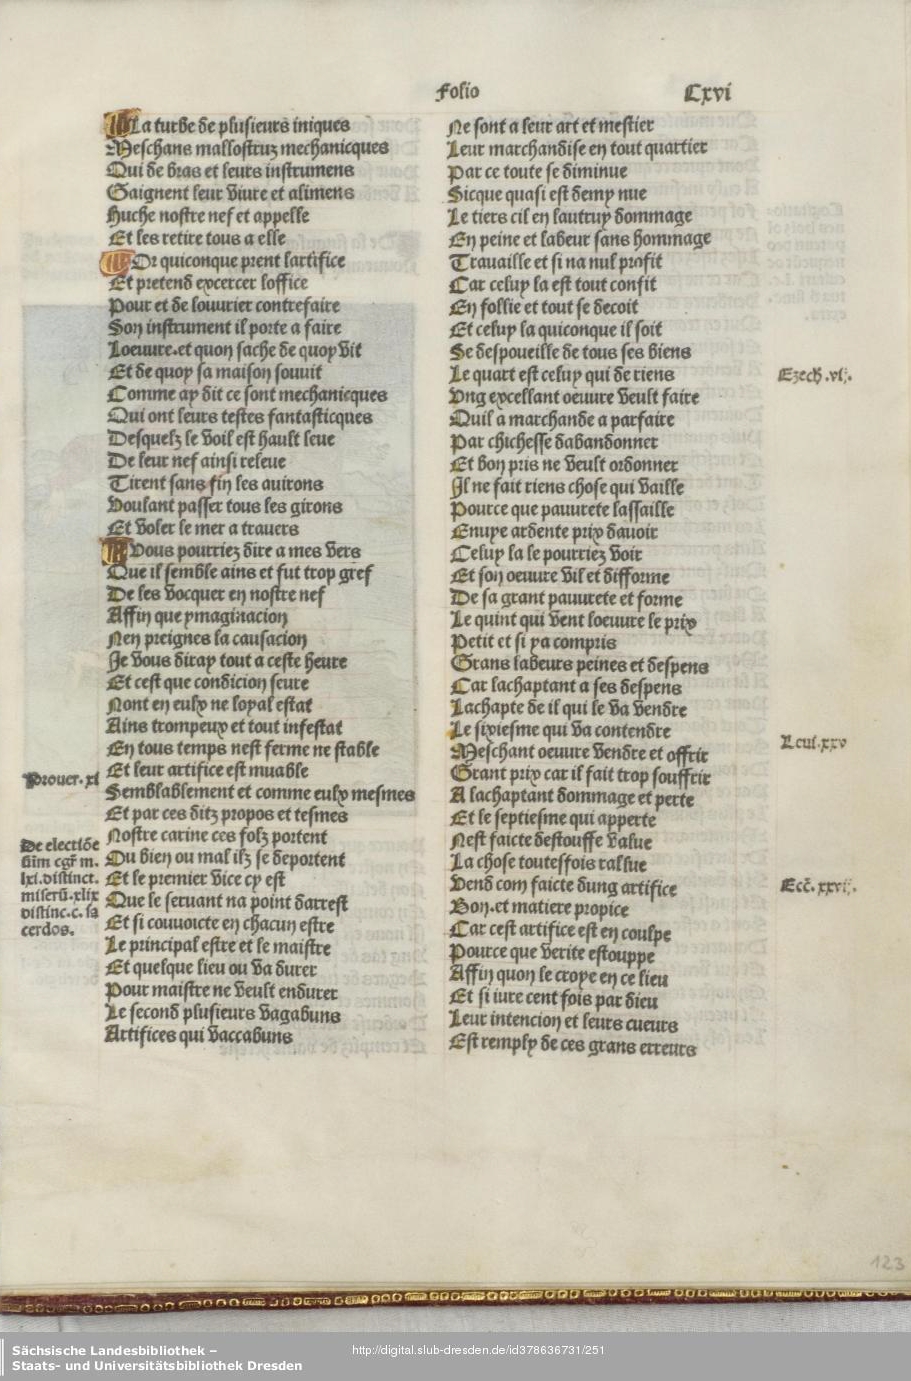 Folio Cxvi
La turbe de plusieurs iniques
Meschans mallostruz mechanicques
Qui de bras et leurs instrumens
Gaignent leur viure et alimens
Huche nostre nef et appelle
Et les retire tous a elle
Or quiconque prent lartifice
Et pretend excercer loffice
Pour et de louurier contrefaire
Son instrument il porte a faire
Loeuure.et quon sache de quoy vit
Et de quoy sa maison souuit
Comme ay dit ce sont mechanicques
Qui ont leurs testes fantasticques
Desquelz le voil est hault leue
De leur nef ainsi releue
Tirent sans fin les auirons
Voulant passer tous les girons
Et voler le mer a trauers
Vous pourriez dire a mes vers
Que il semble ains et fut trop gref
De les vocquer en nostre nef
Affin que ymaginacion
Nen preignes la causacion
Je vous diray tout a ceste heure
Et cest que condicion seure
Nont en eulx ne loyal estat
Ains trompeux et tout infestat
En tous temps nest ferme ne stable
Et leur artifice est muable
Semblablement et comme eulx mesmes
Et par ces ditz propos et tesmes
Nostre carine ces folz portent
Ou bien ou mal ilz se deportent
Et le premier vice cy est
Que le seruant na point darrest
Et si couuoicte en chacun estre
Le principal estre et le maistre
Et quelque lieu ou va durer
Pour maistre ne veult endurer
Le second plusieurs vagabuns
Artifices qui vaccabuns
Prouer.xi
De electiōe
lxi.distinct.
miserū.xlix
distinc.c.sa
cerdos.
Ne sont a leur art et mestier
Leur marchandise en tout quartier
Par ce toute se diminue
Sicque quasi est demy nue
Le tiers cil en lautruy dommage
En peine et labeur sans hommage
Trauaille et si na nul profit
Car celuy la est tout confit
En follie et tout se decoit
Et celuy la quiconque il soit
Se despoueille de tous ses biens
Le quart est celuy qui de riens
Vng excellant oeuure veult faire
Quil a marchande a parfaire
Par chichesse dabandonner
Et bon pris ne veult ordonner
Il ne fait riens chose qui vaille
Pource que pauurete lassaille
Enuye ardente prix dauoir
Celuy la le pourriez voir
Et son oeuure vil et difforme
De sa grant pauurete et forme
Le quint qui vent loeuure le prix
Petit et si ya compris
Grans labeurs peines et despens
Car lachaptant a ses despens
Lachapte de il qui le va vendre
Le sixiesme qui va contendre
Meschant oeuure vendre et offrir
Grant prix car il fait trop souffrir
A lachaptant dommage et perte
Et le septiesme qui apperte
Nest faicte destouffe value
La chose toutesfois tallue
Vend com faicte dung artifice
Bon.et matiere propice
Car cest artifice est en coulpe
Pource que verite estouppe
Affin quon le croye en ce lieu
Et si iure cent fois par dieu
Leur intencion et leurs cueurs
Est remply de ces grans erreurs
Ezech.vij.
Leui.xxv
Ecc̄.xxvij.
123
Sächsische Landesbibliothek –
Staats- und Universitätsbibliothek Dresden
http://digital.slub-dresden.de/id378636731/251